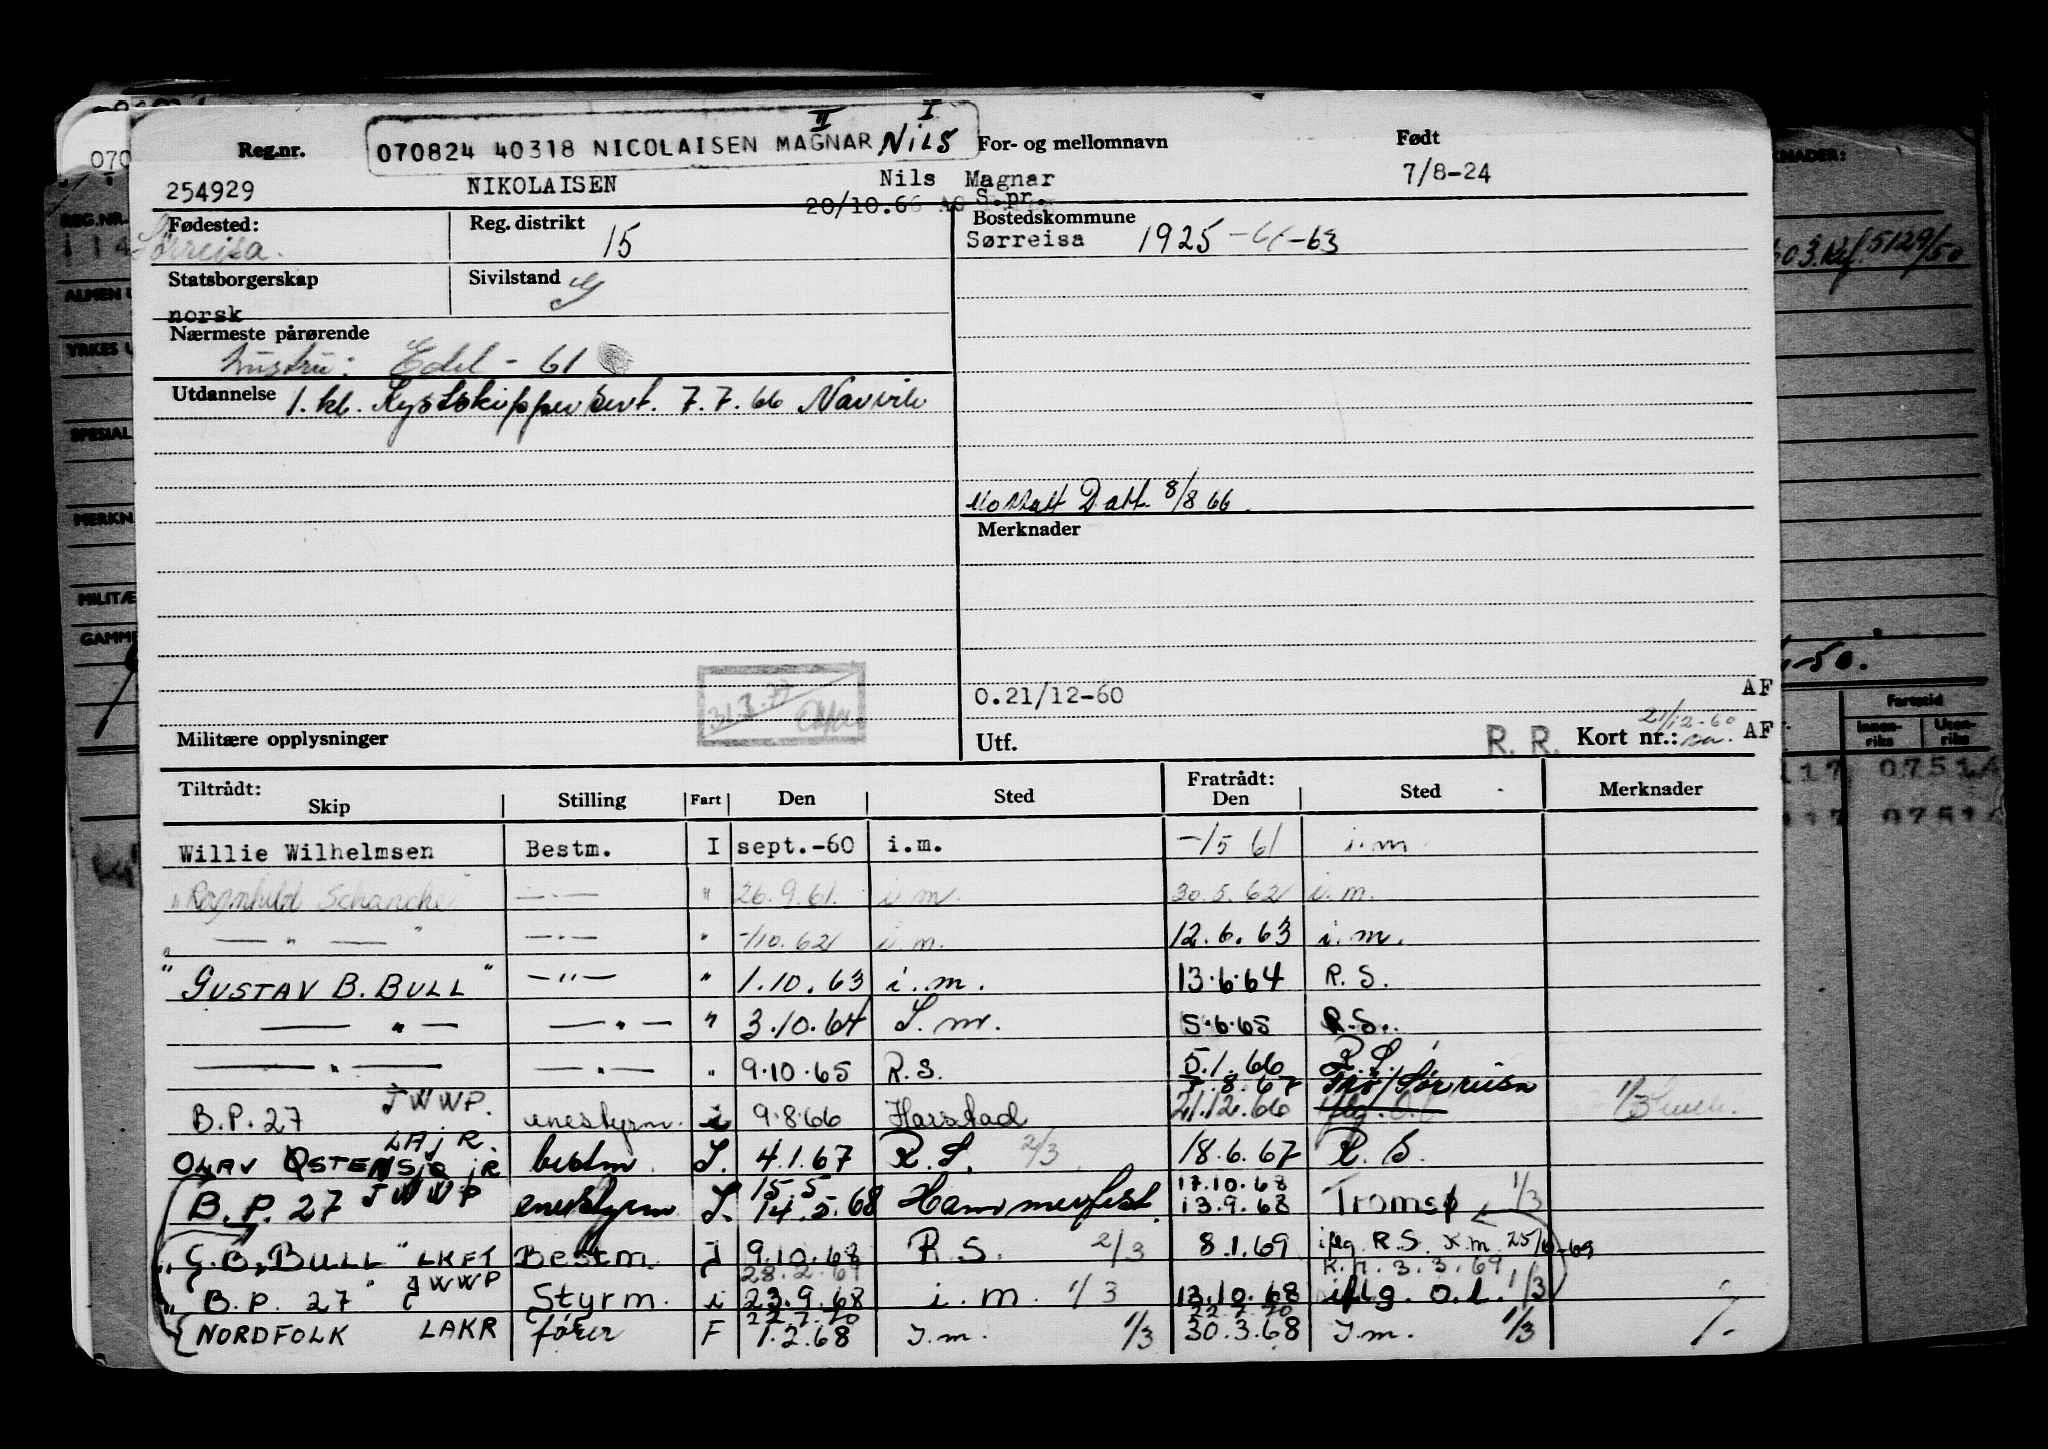 II I
Reg.nr. 070824 40318 NICOLAISEN MAGNAR Nils For- og mellomnavn Født
254929 NIKOLAISEN Nils Magnar 7/8-24
20/10.66 S.pr.
Fødested: Reg. distrikt Bostedskommune
Sørreisa. 15 Sørreisa 1925 -61-63
Statsborgerskap Sivilstand G
norsk
Nærmeste pårørende
hustru: Edel - 61
Utdannelse 1. kl. Kystskippersert. 7.7.66 Narvik
Mottatt Datt. 8/8 66.
Merknader
O.21/12-60 AF
31.3.77
Militære opplysninger Utf. R. R. Kort nr.: 21/12-60 AF
Tiltrådt: Fratrådt:
Skip Stilling Fart Den Sted Den Sted Merknader
Willie Wilhelmsen Bestm. I sept.-60 i.m. -/5 61 i.m
" Ragnhild Schanche —.— " 26.9.61. i m. 30.5.62 i.m.
" — " — " —.— " -/10.62 i.m. 12.6.63 i.m.
" GUSTAV B. BULL " —"— " 1.10.63 i.m. 13.6.64 R.S.
— " — — " — " 3.10.64 I.m. 5.6.65 R.S.
— " — — " — " 9.10.65 R.S. 5.1.66 R.S.
B.P.27 JWWP. enestyrm. i 9.8.66 Harstad 7.8.67 21.12.66 1/3
OLAV ØSTENSJØ JR LAJR. bestm. I. 4.1.67 R.S. 2/3 18.6.67 R.S.
B.P. 27 JWWP enestyrm I. 15.5 14.5.68 Hammerfest. 17.10.68 13.9.68 Tromsø 1/3
" G.B. BULL " LKFT Bestm. I 9.10.68 R.S. 2/3 8.1.69 iflg. R.S. K.m. 25/6-69
" B.P. 27 " JWWP Styrm. i 28.2.69 23.9.68 i.m. 1/3 K.H. 3.3.69 13.10.68 iflg. O.l. 1/3
NORDFOLK LAKR fører F 1.2.68 I.m. 1/3 30.3.68 I.m. 1/3
070
REG.NR.
114
ALMEN U
YRKES U
SPESIAL
MERKN
MILITÆ
GAMME
KNADER:
603. Kr/5129/50
-50.
Fartstid
Innen-riks Uten-riks
117 07514
117 07514